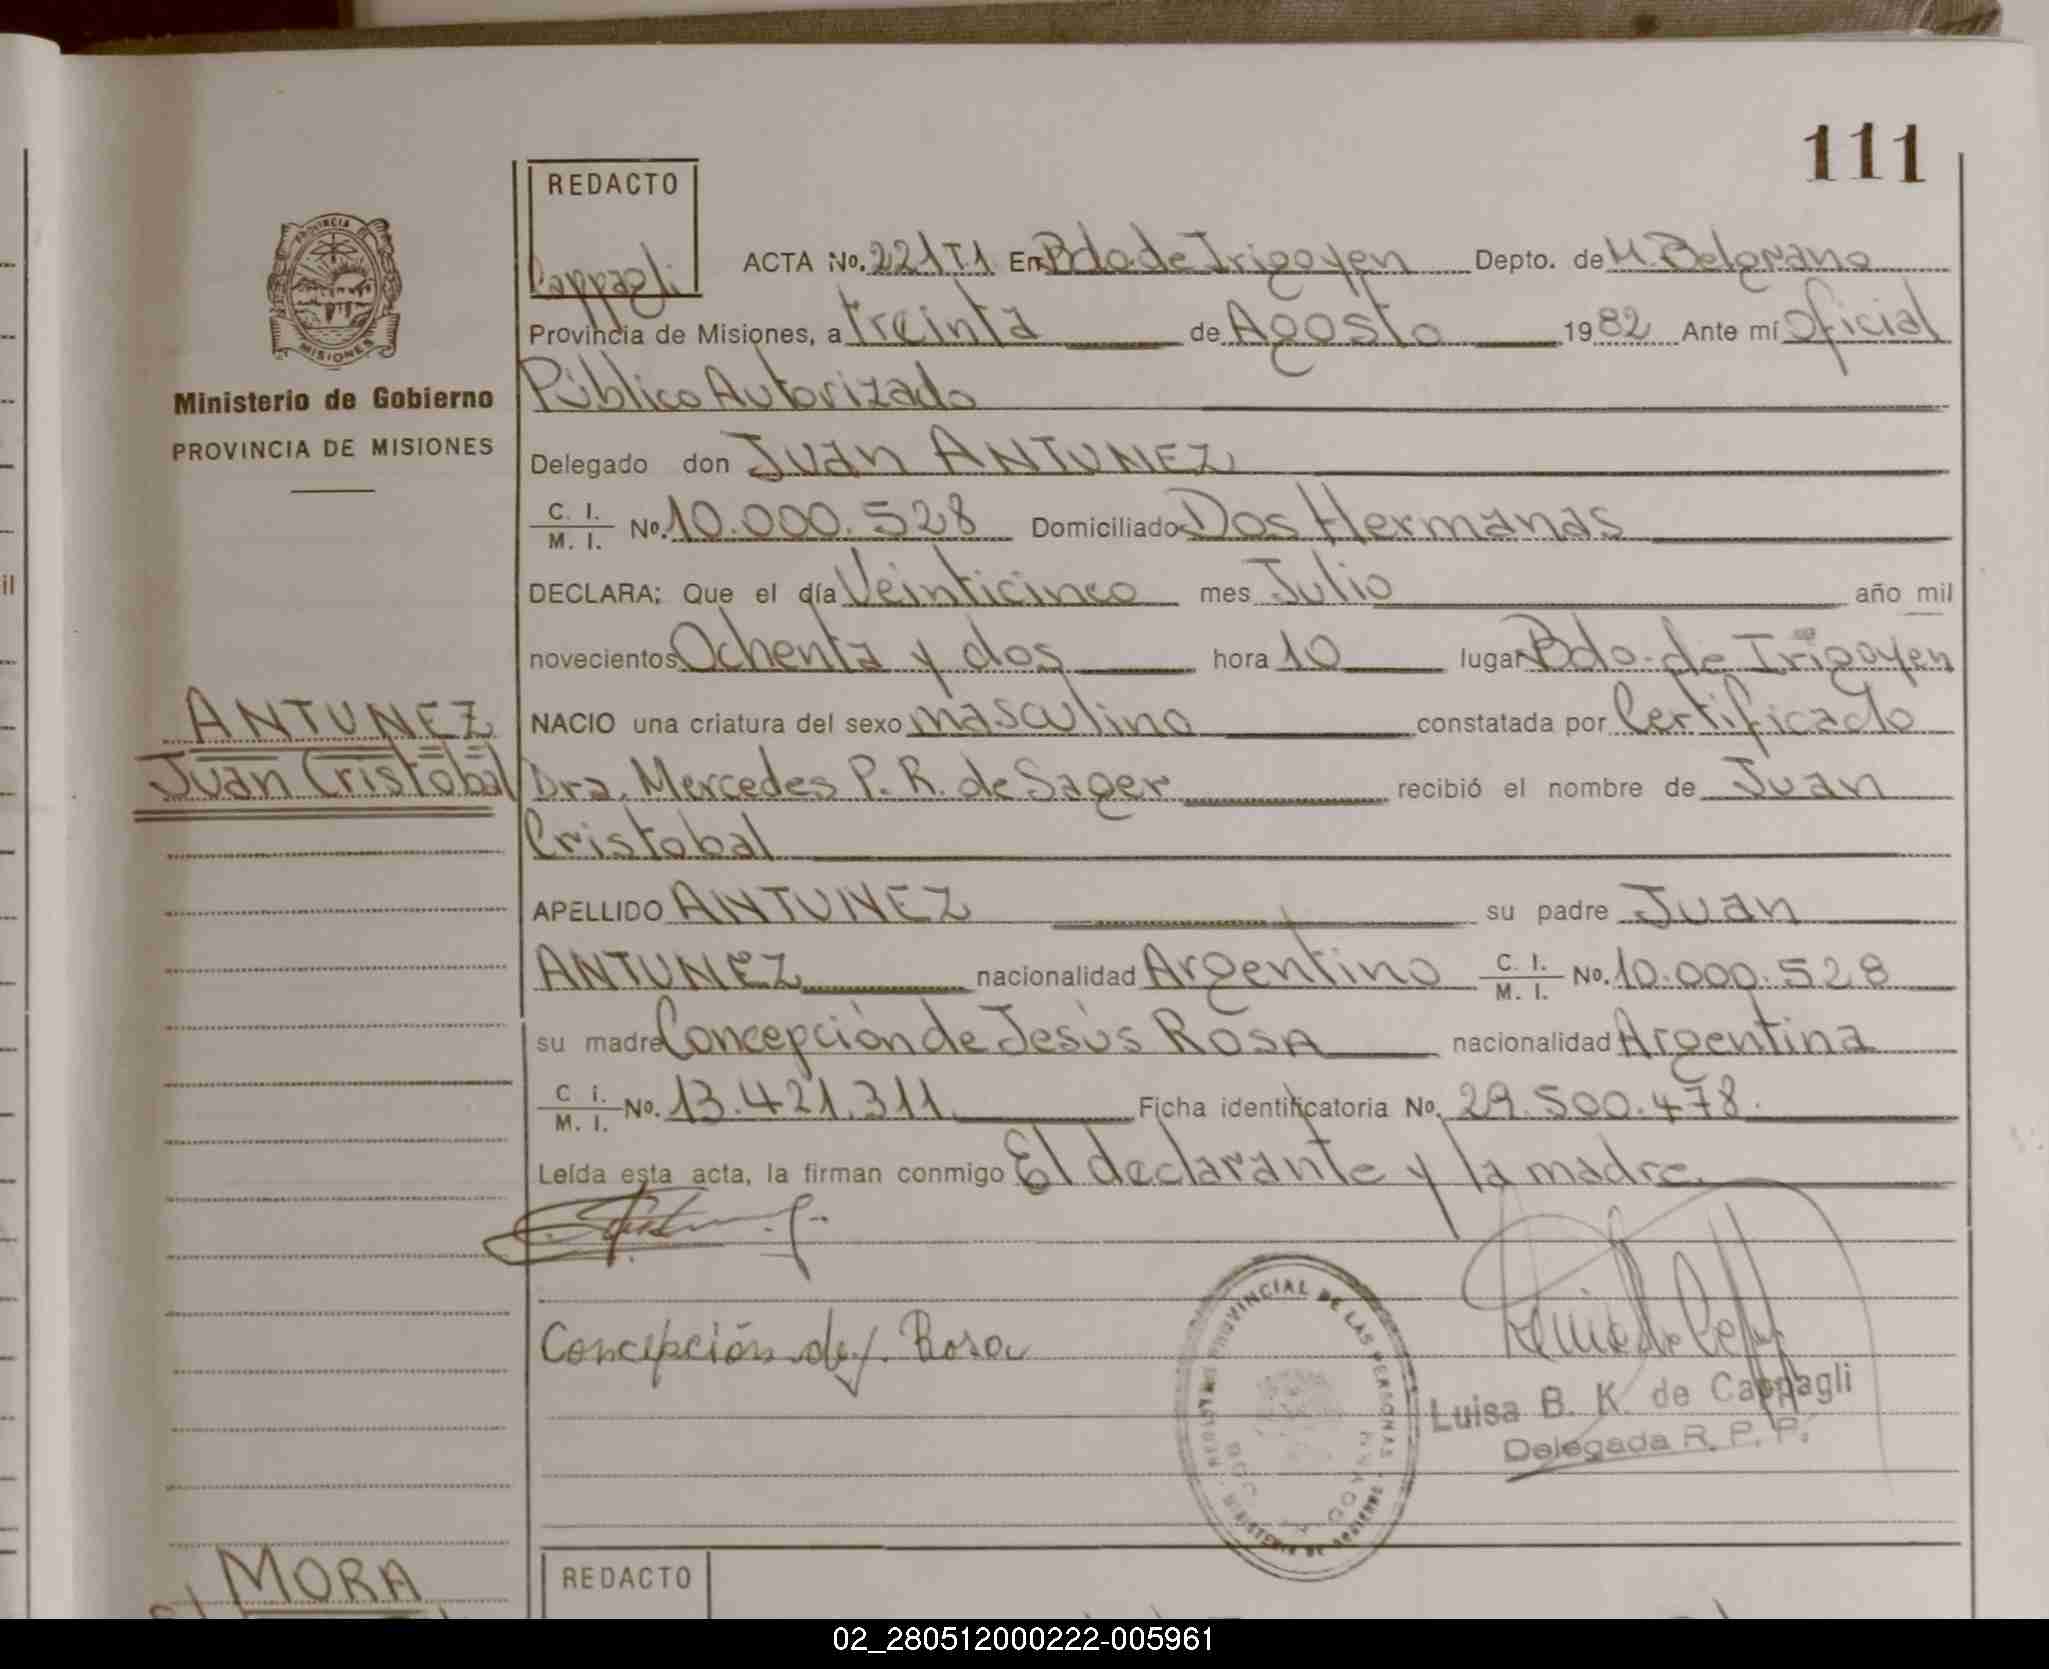 111
REDACTO
Cappagli
ACTA No. 221T1 En Bdo de Irigoyen Depto. de M. Belgrano
Provincia de Misiones, a treinta de Agosto 1982 Ante mí Oficial
Público Autorizado
Delegado don Juan ANTUNEZ
C. I.
M. I. No. 10.000.528 Domiciliado Dos Hermanas
DECLARA: Que el día Veinticinco mes Julio año mil
novecientos Ochenta y dos hora 10 lugar Bdo. de Irigoyen
NACIO una criatura del sexo masculino constatada por Certificado
Dra. Mercedes P. R. de Sager recibió el nombre de Juan
Cristobal
APELLIDO ANTUNEZ su padre Juan
ANTUNEZ nacionalidad Argentino C. I. M. I. No. 10.000.528
su madre Concepción de Jesús ROSA nacionalidad Argentina
C. I.
M. I. No. 13.421.311 Ficha identificatoria No. 29.500.478.
Leída esta acta, la firman conmigo El declarante y la madre.
Concepción de J. Rosa
PROVINCIAL DE LAS PERSONAS
Luisa B. K. de Cappagli
Delegada R. P. P.
PROVINCIA DE
MISIONES
Ministerio de Gobierno
PROVINCIA DE MISIONES
ANTUNEZ
Juan Cristobal
MORA
REDACTO
il
02_280512000222-005961